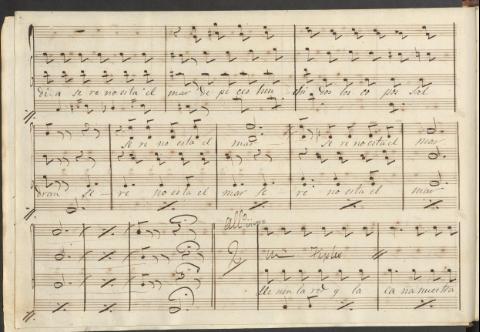 dia se re no esta el mar de pe ces hen chi dos los co pos sal
se re no esta el mar se re no esta el mar
dran se re no esta el mar se re no esta el mar
allo
un Tiple
lle nen la red y la ca ña nuestra